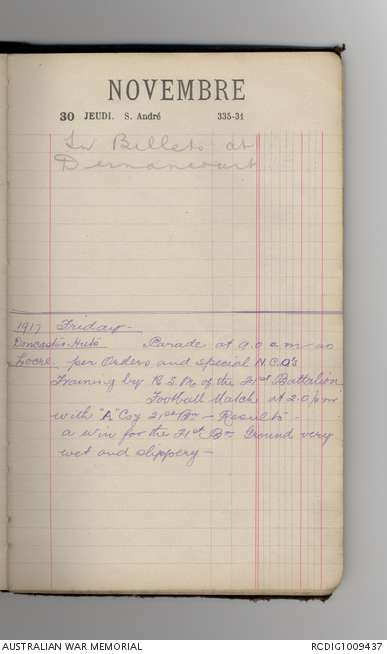 NOVEMBRE
30 JEUDI. S. André 335-31
In Billets at
Dernancourt
1917 Friday -
Doncaster Huts Parade at 9.0 a m - as
Locre - per Orders and special N.C.O's
Training by R S M. of the 21st Battalion
Football Match at 2.0 p m
with "A" Coy 21st Bn - Results -
a win for the 21st Bn Ground very
wet and slippery -
AUSTRALIAN WAR MEMORIAL RCDIG1009437